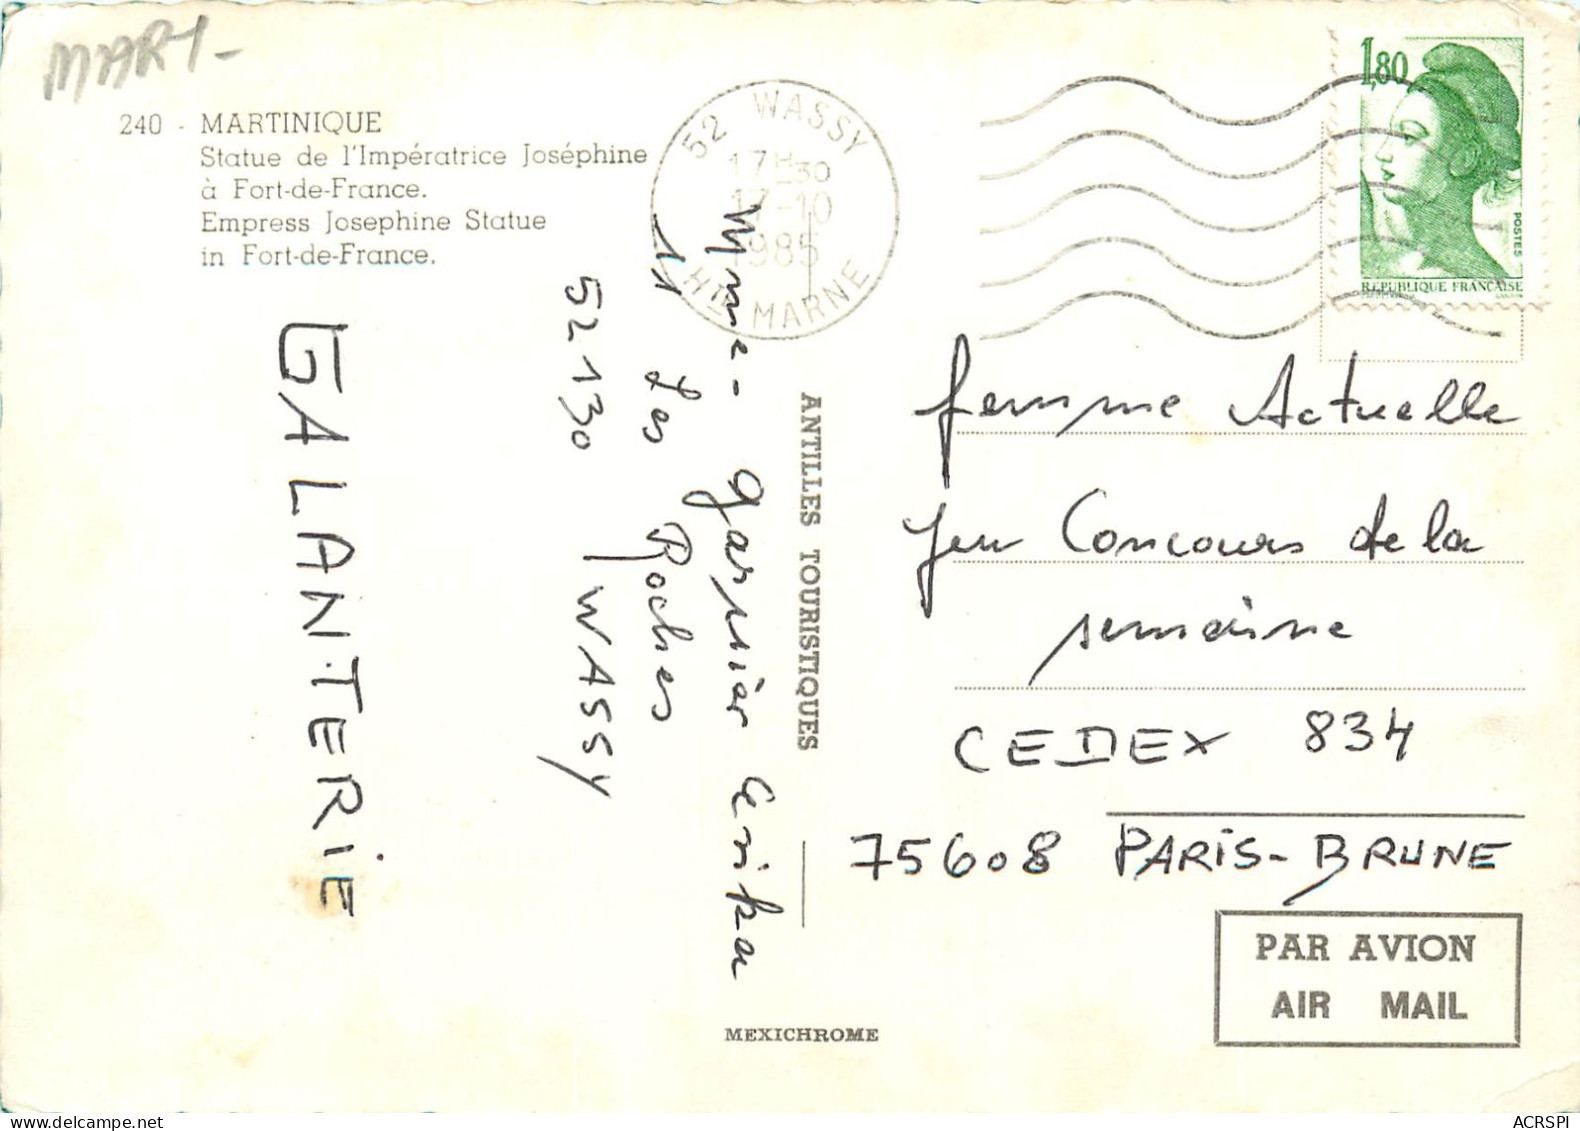 MART-
240 - MARTINIQUE
Statue de l'Impératrice Joséphine
à Fort-de-France.
Empress Josephine Statue
in Fort-de-France.
52 WASSY
17H30
17-10
1985
HTE MARNE
1,80
POSTES
REPUBLIQUE FRANÇAISE
GANDON
Mme - Garnier Erika
11 Les Roches
52130 WASSY
GALANTERIE
ANTILLES TOURISTIQUES
femme Actuelle
Jeu Concours de la
semaine
CEDEX 834
75608 PARIS-BRUNE
PAR AVION
AIR MAIL
MEXICHROME
ACRSPI